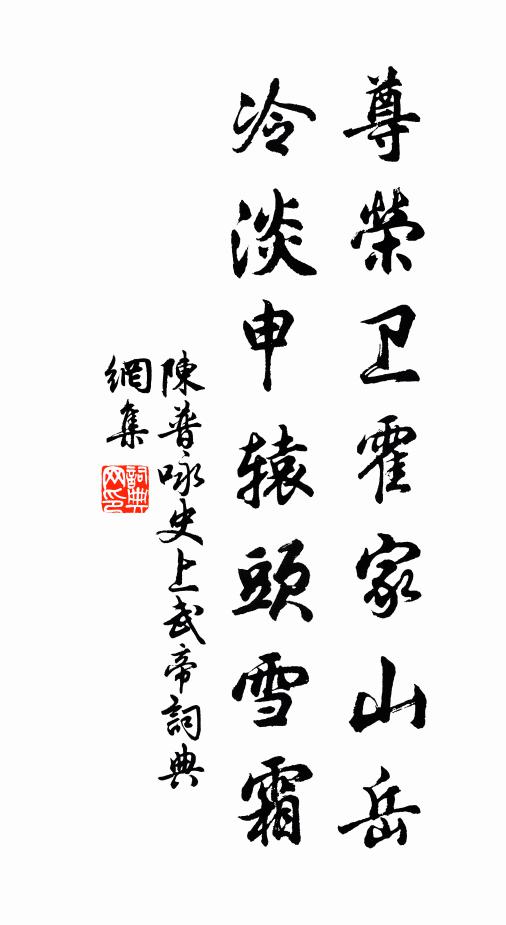 尊榮卫霍家山岳
冷淡申辕頭雪霜
陳普咏史上武帝詞典
網集
詞典网印